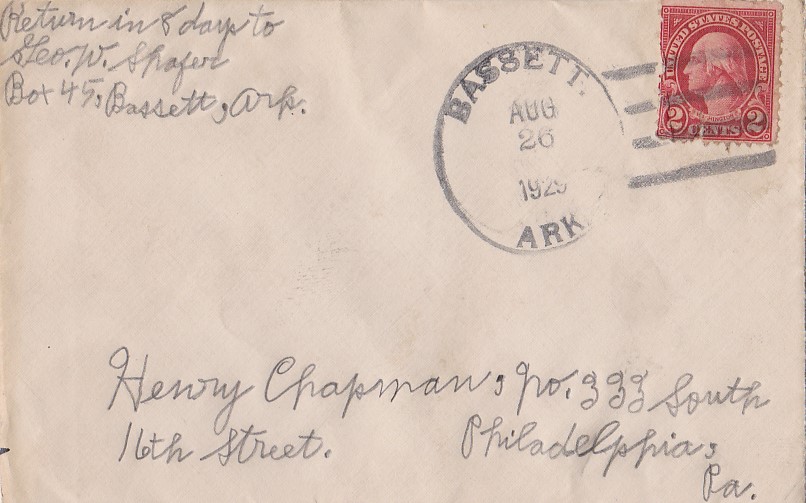 Return in 8 days to
Geo. W. Shafer
Box 45, Bassett, Ark.
BASSETT.
AUG
26
1929
ARK
UNITED STATES POSTAGE
WASHINGTON
2 CENTS 2
Henry Chapman, No. 333 South
16th Street. Philadelphia,
Pa.